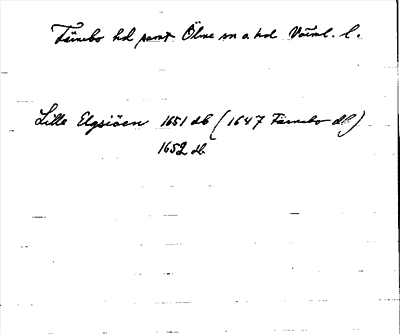 Färnebo hd samt Ölme sn o hd Värml. l.
Lille Elgsiöen 1651 db (1647 Färnebo db)
1652 db